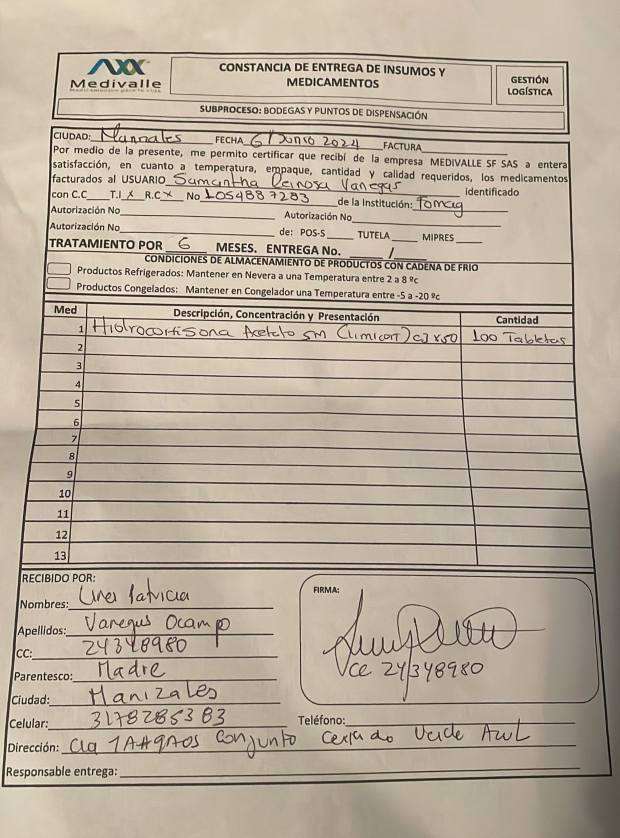 Medivalle
CONSTANCIA DE ENTREGA DE INSUMOS Y MEDICAMENTOS
GESTIÓN LOGÍSTICA
SUBPROCESO: BODEGAS Y PUNTOS DE DISPENSACIÓN
CIUDAD: Manizales FECHA 6/Junio 2024 FACTURA
Por medio de la presente, me permito certificar que recibí de la empresa MEDIVALLE SF SAS a entera
satisfacción, en cuanto a temperatura, empaque, cantidad y calidad requeridos, los medicamentos
facturados al USUARIO Samantha Reinosa Vanegas identificado
con C.C T.I X R.C X No 1054887283 de la Institución: Tomag
Autorización No Autorización No
Autorización No de: POS-S TUTELA MIPRES
TRATAMIENTO POR 6 MESES. ENTREGA No. /
CONDICIONES DE ALMACENAMIENTO DE PRODUCTOS CON CADENA DE FRIO
Productos Refrigerados: Mantener en Nevera a una Temperatura entre 2 a 8 ºc
Productos Congelados: Mantener en Congelador una Temperatura entre -5 a -20 ºc
Med Descripción, Concentración y Presentación Cantidad
1 Hidrocortisona Acetato 5M (limicort) cj x50 100 Tabletas
2
3
4
5
6
7
8
9
10
11
12
13
RECIBIDO POR:
FIRMA:
Nombres: Lines Patricia
Apellidos: Vanegas Ocampo
CC: 24348980
CC 24348980
Parentesco: Madre
Ciudad: Manizales
Celular: 3178285383 Teléfono:
Dirección: Conjunto Cerrado Verde Azul
Responsable entrega: